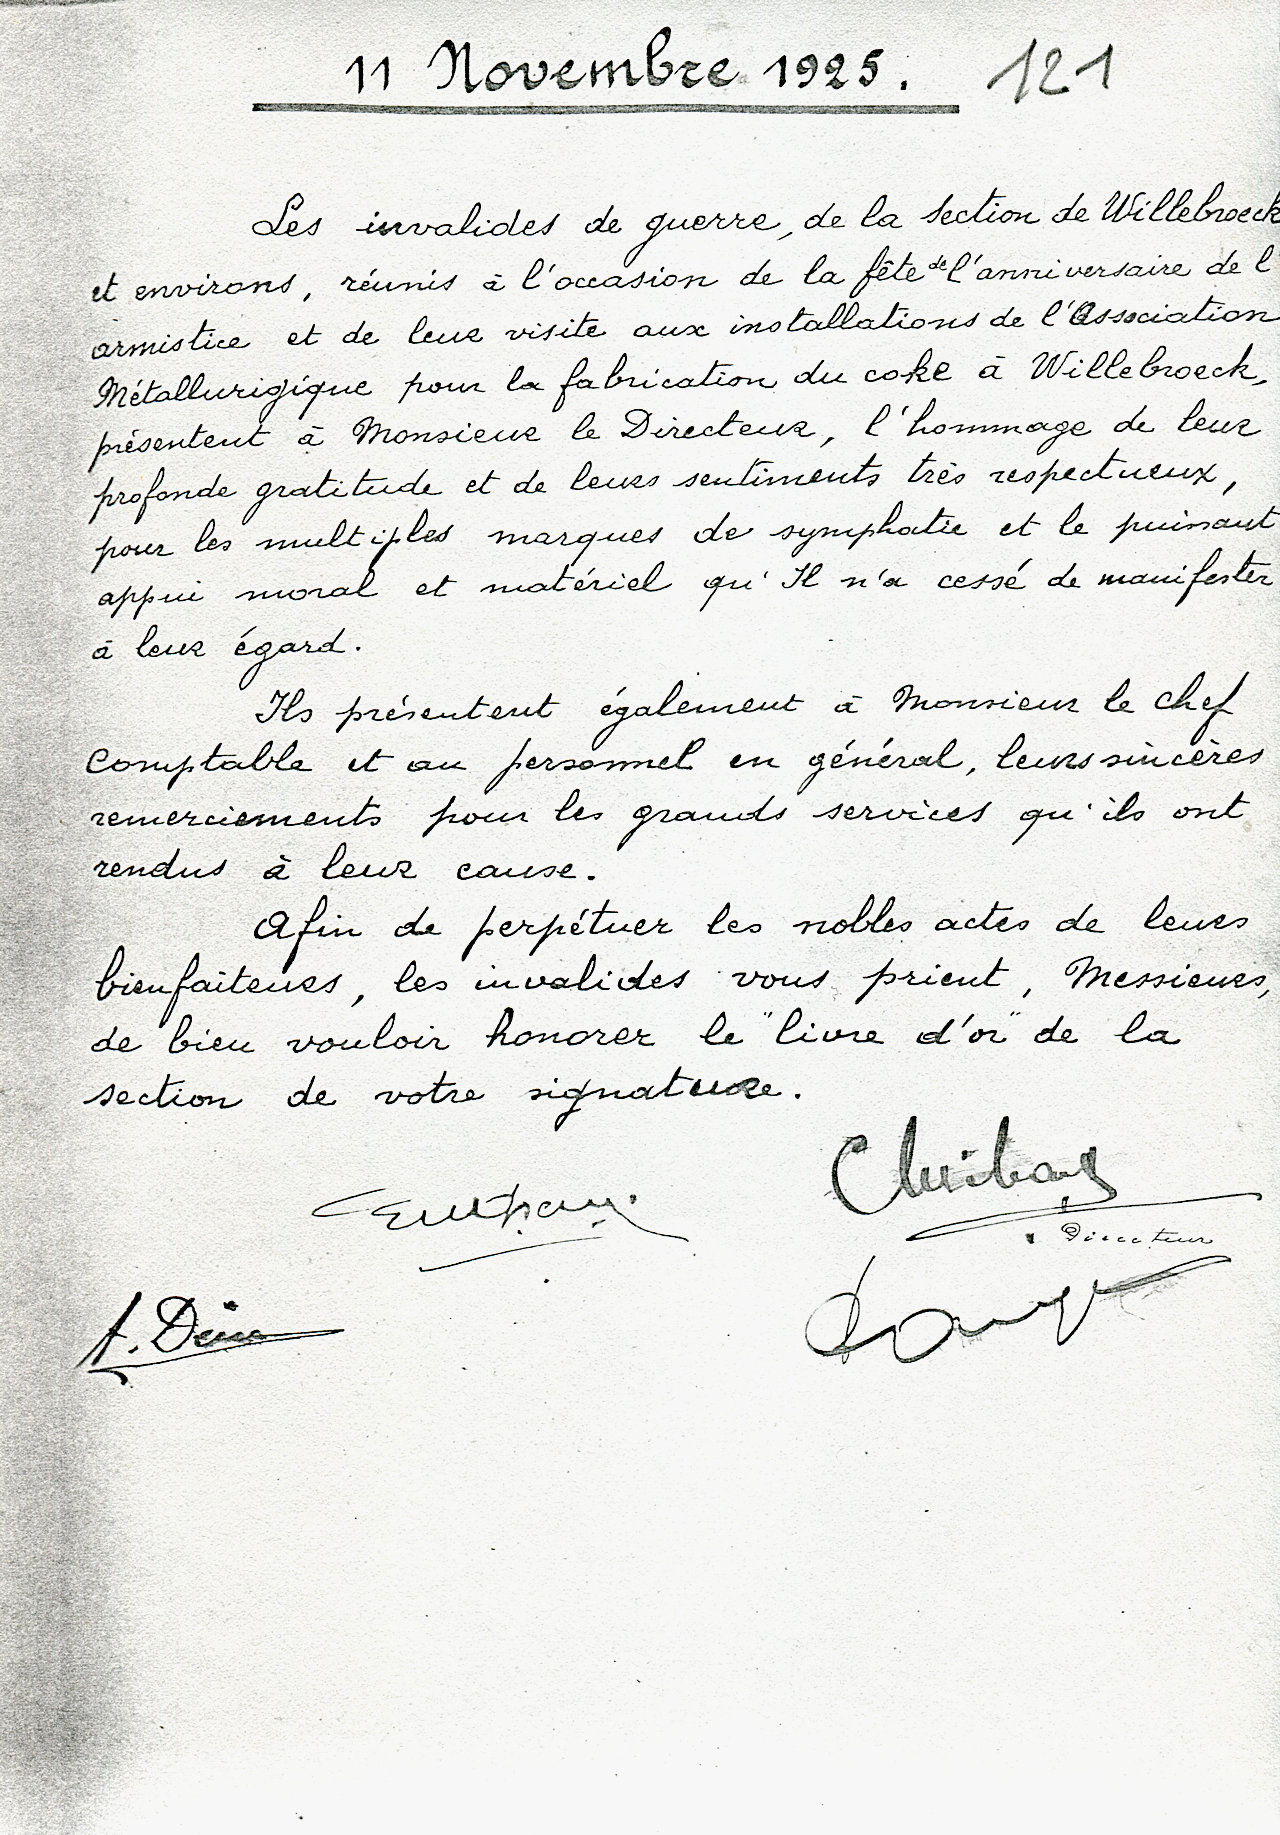 11 Novembre 1925. 121
Les invalides de guerre, de la section de Willebroeck
et environs, réunis à l'occasion de la fête de l'anniversaire de l'
armistice et de leur visite aux installations de l'Association
Métallurigique pour la fabrication du coke à Willebroeck,
présentent à Monsieur le Directeur, l'hommage de leur
profonde gratitude et de leurs sentiments très respectueux,
pour les multiples marques de symphatie et le puissant
appui moral et matériel qu'Il n'a cessé de manifester
à leur égard.
Ils présentent également à Monsieur le chef
comptable et au personnel en général, leurs sincères
remerciements pour les grands services qu'ils ont
rendus à leur cause.
Afin de perpétuer les nobles actes de leurs
bienfaiteurs, les invalides vous prient, Messieurs,
de bien vouloir honorer le "livre d'or" de la
section de votre signature.
Directeur
A.